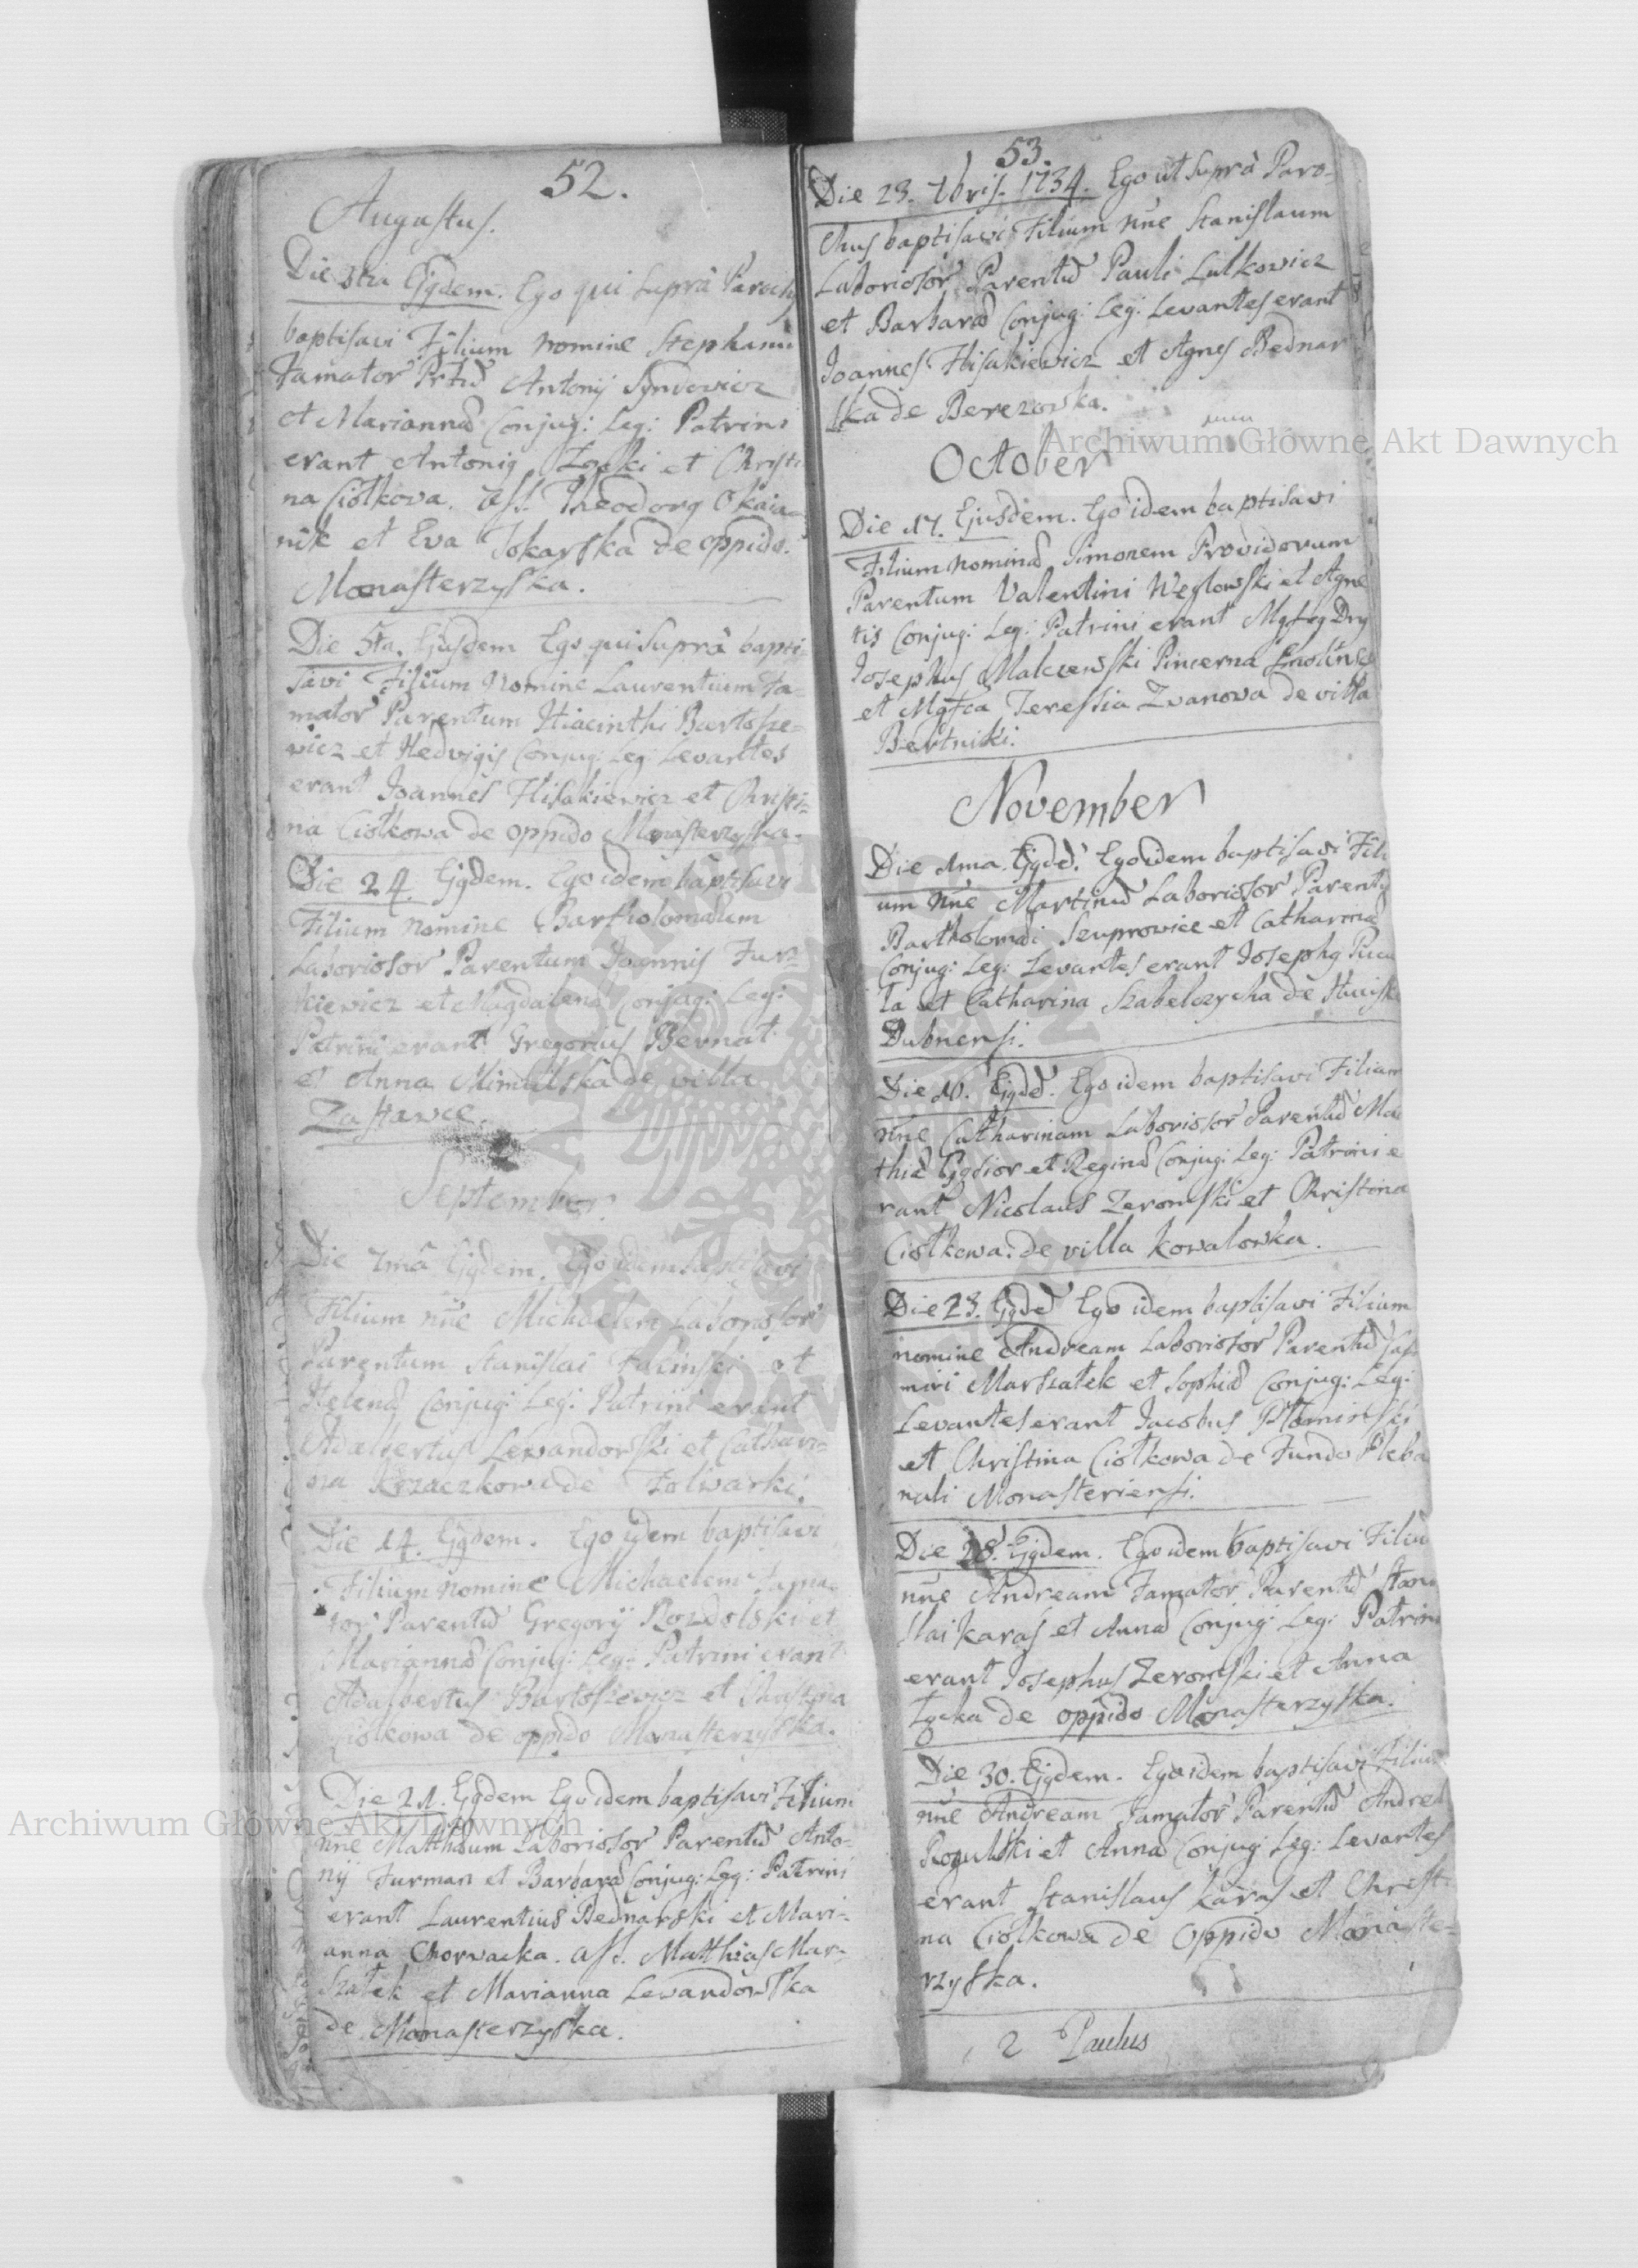 52.
Augustus.
Die 3tia Ejgdem. Ego qui supra Paroch
baptisavi Filium nomine Stephanu
Famator Prtũ Antonij
et Mariannæ Conjug: Leg: Patrini
erant Antonig et Christi
na Ciołkova. Ass. Theodorg
nik et Eva Tokarska de oppido.
Monasterzyska.
Die 5ta. Ejusdem Ego qui supra bapti-
savi Filium Nomine Laurentium Fa-
mator Parentum Hiacinthi Bartosze-
wicz et Hedvigis Conjug: Leg: Levantes
erant Joannes Hisakiewicz et Christi-
na Ciołkowa de oppido Monasterzyska.
Die 24. Ejgdem. Ego idem baptisavi
Filium nomine Bartholomæum
Laboriosor Parentum Joannis Fur-
kiewicz et Magdalenæ Conjug: Leg:
Patrini erant Gregorius Bernat
et Anna de villa
Zastawce.
September
Die 7ma Ejgdem. Ego idem baptisavi
Filium nñe Michaelem Laborosor
Parentum Stanislai Falinski et
Helenæ Conjug: Leg: Patrini erant
Adalbertus Lewandowski et Cathari-
na Krzaczkowa de Folwarki.
Die 14. Ejgdem. Ego idem baptisavi
Filium nomine Michaelem Fama-
tor Parentũ Gregorij Rozdolski et
Mariannæ Conjug: Leg: Patrini erant
Adalbertus Bartoszewicz et Christina
Ciolkowa de oppido Monasterzyska.
Die 21. Ejgdem Ego idem baptisavi Filium
nñe Matthæum Laboriosor Parentũ Anto-
nij Furman et Barbaræ Conjug: Leg: Patrini
erant Laurentius Bednarski et Mari-
anna Chorwacka. Ass. Matthias Mar-
szałek et Marianna Lewandowska
de Monasterzyska.
53.
Die 23. 7bris. 1734. Ego ut supra Paro-
chus baptisavi Filium nñe Stanislaum
Laboriosor Parentũ Pauli Lulkowicz
et Barbaræ Conjug: Leg: Levantes erant
Joannes Hisakiewicz et Agnes Bednar
ska de Berezowska.
October
Die 17. Ejusdem. Ego idem baptisavi
Filium nominæ Simonem Providorum
Parentum Valentini Węglowski et Agne
tis Conjug: Leg: Patrini erant Mgfcg Dng
Josephus Malczewski Pincerna
et Mgfca Teressia Zwanowa de villa
Bertniki.
November
Die 1ma. Ejgdẽ. Ego idem baptisavi Fili
um nñe Martinũ Laboriosor Parentũ
Bartholomæi et Catharinæ
Conjug: Leg: Levantes erant Josephg Pucu
la et Catharina Szabelczycha de
Dubnensi.
Die 10. Ejgdẽ. Ego idem baptisavi Filiam
nñe Catharinam Laboriosor Parentũ Mat
thiæ et Reginæ Conjug: Leg: Patrini e
rant Nicolaus Zeromski et Christina
Ciołkowa. de villa Kowalowka.
Die 23. Ejgdẽ Ego idem baptisavi Filium
nomine Andream Laboriosor Parentũ Cas
miri Marszałek et Sophiæ Conjug: Leg:
Levantes erant Jacobus Płominski
et Christina Ciołkowa de Fundo Pleba
nali Monasteriensi.
Die 28. Ejgdem. Ego idem baptisavi Filiũ
nñe Andream Famator Parentũ Stani
slai Karas et Annæ Conjug: Leg: Patrini
erant Josephus Zeromski et Anna
Łącka de oppido Monasterzyska.
Die 30. Ejgdem. Ego idem baptisavi Filiũ
nñe Andream Famator Parentũ Andreæ
Rogulski et Annæ Conjug: Leg: Levantes
erant Stanislaus Karas et Christi
na Ciołkowa de Oppido Monaste-
rzyska.
2 Paulus
Archiwum Główne Akt Dawnych
Archiwum Główne Akt Dawnych